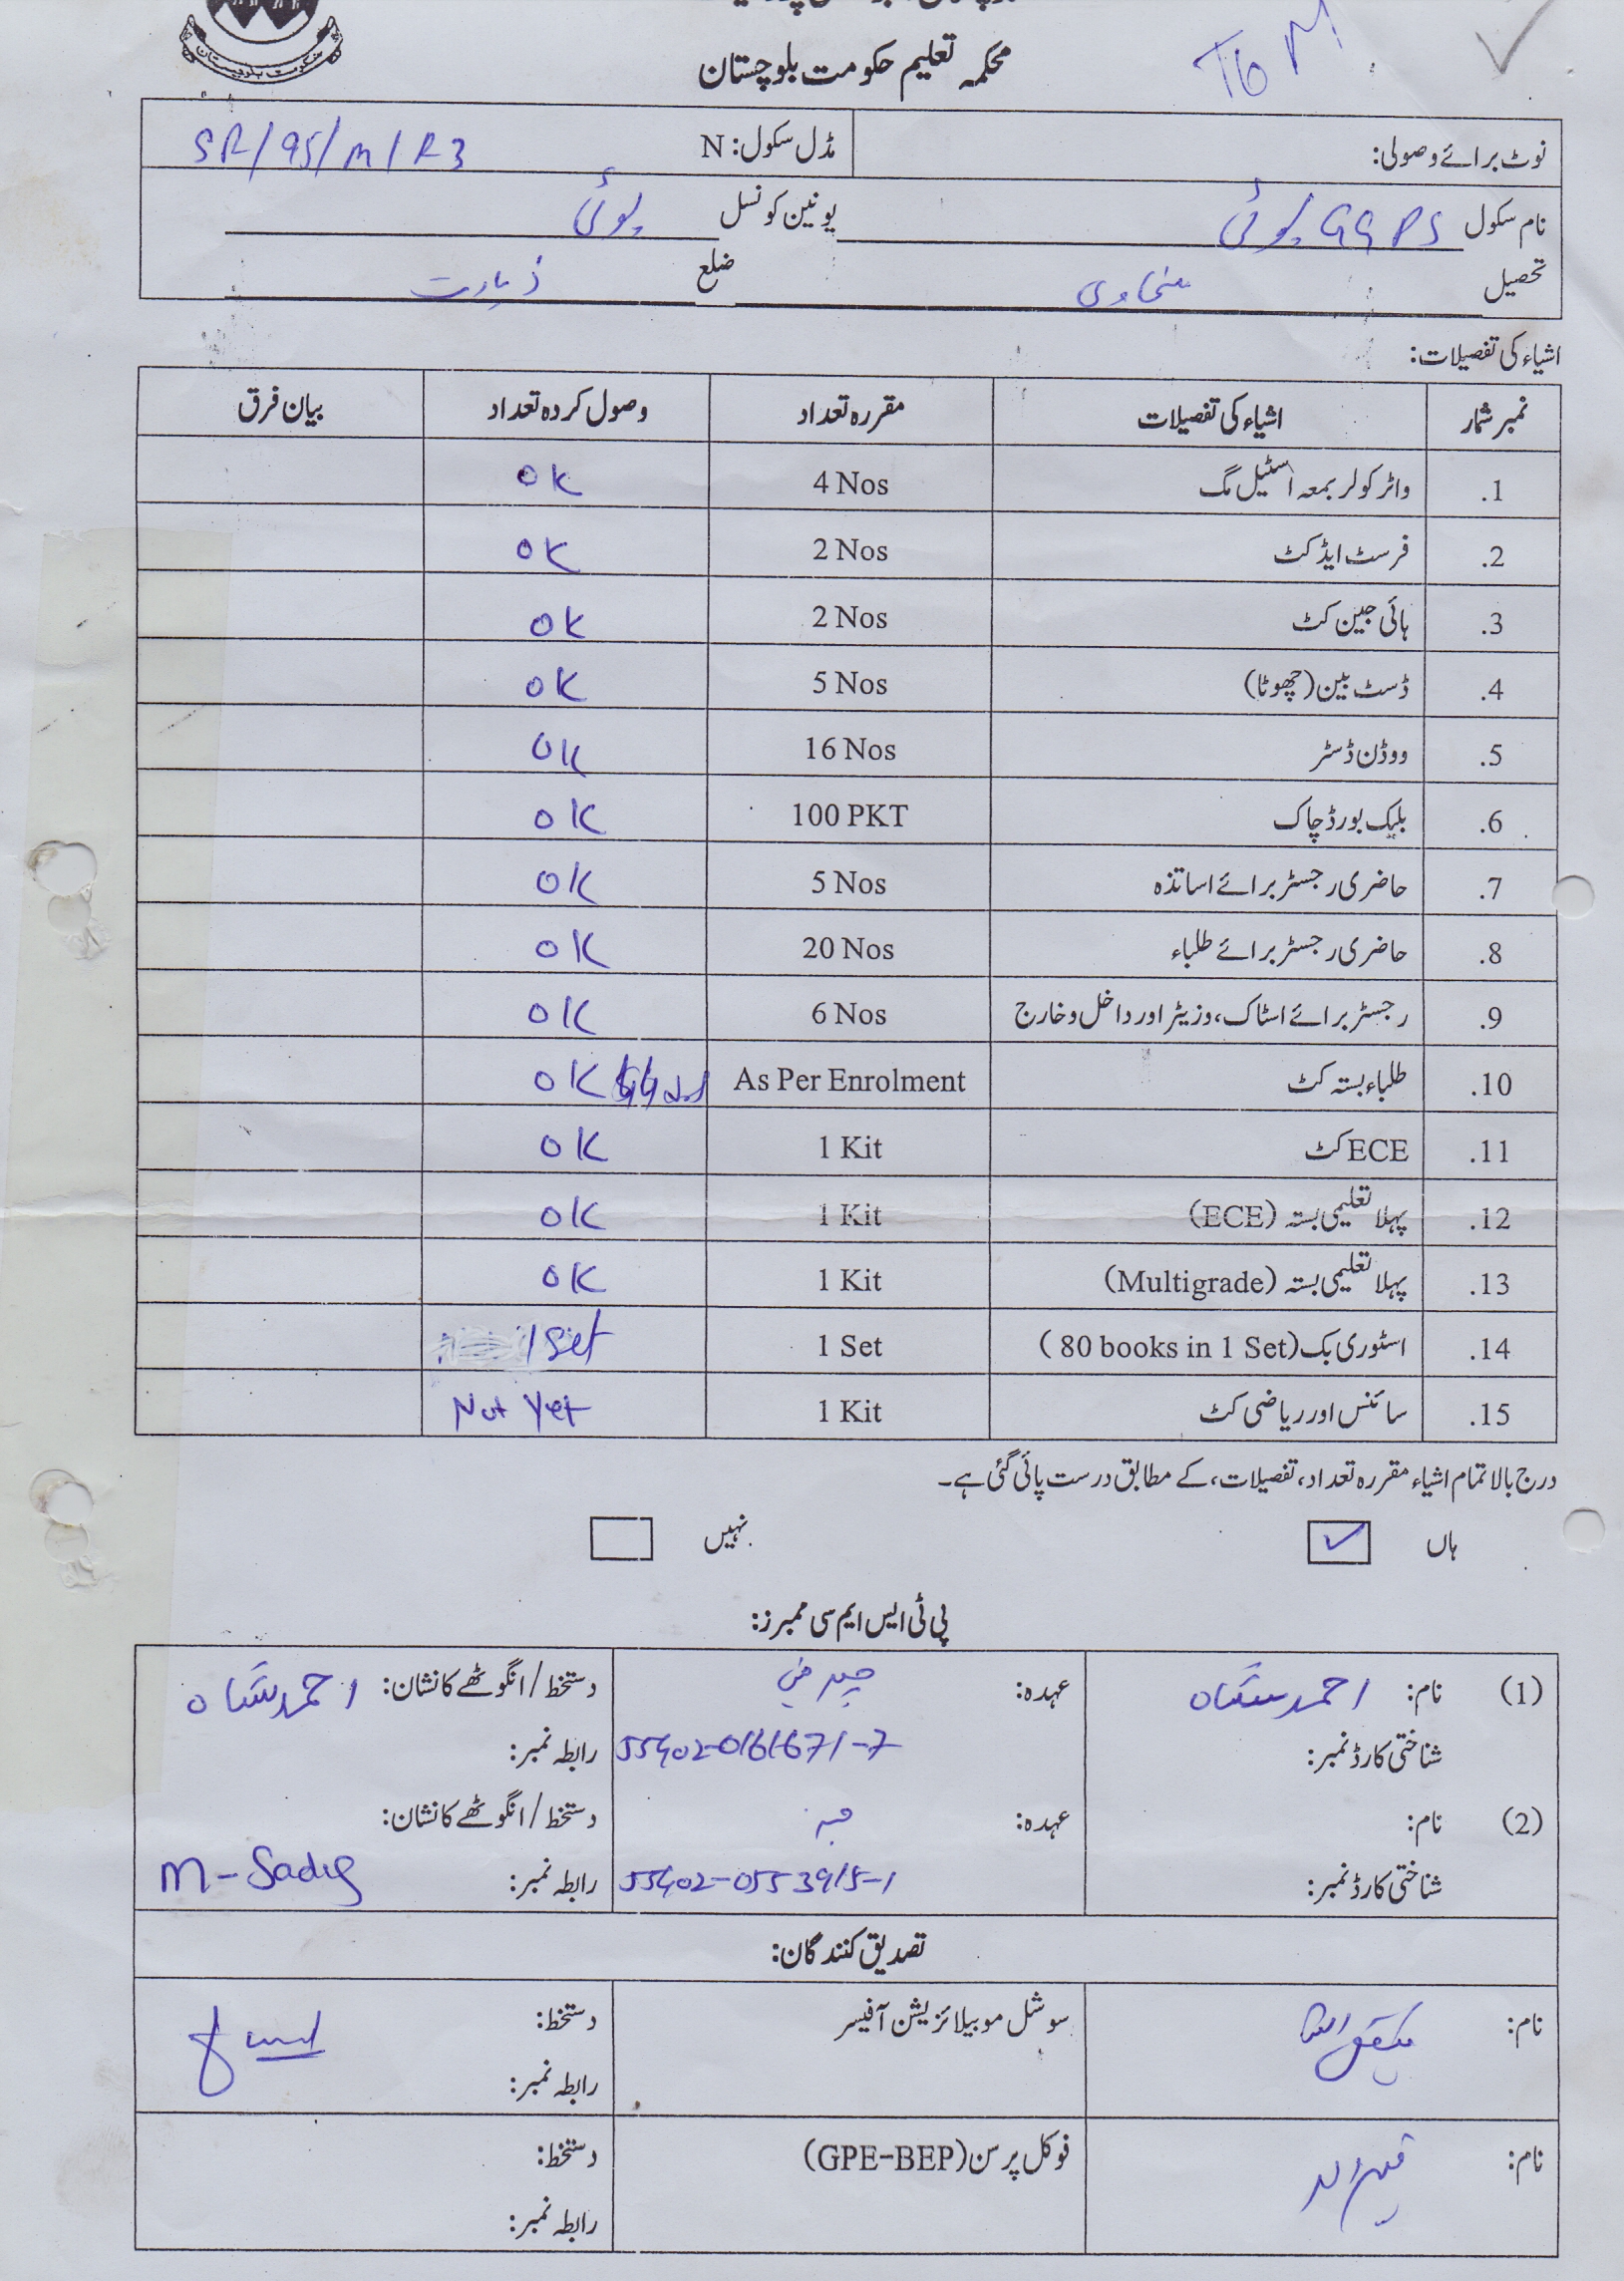 حکومت بلوچستان
محکمہ تعلیم حکومت بلوچستان
To M
نوٹ برائے وصولی: مڈل سکول: N SR/95/M/R3
نام سکول GGPS پوئی یونین کونسل پوئی
تحصیل سنجاوی ضلع زیارت
اشیاء کی تفصیلات:
نمبر شمار اشیاء کی تفصیلات مقررہ تعداد وصول کردہ تعداد بیان فرق
.1 واٹر کولر بمعہ اسٹیل مگ 4 Nos OK
.2 فرسٹ ایڈ کٹ 2 Nos OK
.3 ہائی جین کٹ 2 Nos OK
.4 ڈسٹ بین (چھوٹا) 5 Nos OK
.5 ووڈن ڈسٹر 16 Nos OK
.6 بلیک بورڈ چاک 100 PKT OK
.7 حاضری رجسٹر برائے اساتذہ 5 Nos OK
.8 حاضری رجسٹر برائے طلباء 20 Nos OK
.9 رجسٹر برائے اسٹاک، وزیٹر اور داخل و خارج 6 Nos OK
.10 طلباء بستہ کٹ As Per Enrolment OK
.11 ECE کٹ 1 Kit OK
.12 پہلا تعلیمی بستہ (ECE) 1 Kit OK
.13 پہلا تعلیمی بستہ (Multigrade) 1 Kit OK
.14 اسٹوری بک (80 books in 1 Set) 1 Set 1 Set
.15 سائنس اور ریاضی کٹ 1 Kit Not Yet
درج بالا تمام اشیاء مقررہ تعداد، تفصیلات، کے مطابق درست پائی گئی ہے۔
ہاں ✓ نہیں
پی ٹی ایس ایم سی ممبرز:
(1) نام: احمد شاہ عہدہ: چیئرمین دستخط/انگوٹھے کا نشان: احمد شاہ
شناختی کارڈ نمبر: 55402-0161671-7 رابطہ نمبر:
(2) نام: عہدہ: دستخط/انگوٹھے کا نشان:
شناختی کارڈ نمبر: 55402-0553915-1 رابطہ نمبر: M-Sadiq
تصدیق کنندگان:
نام: سوشل موبیلائزیشن آفیسر دستخط:
رابطہ نمبر:
نام: فوکل پرسن (GPE-BEP) دستخط:
رابطہ نمبر: